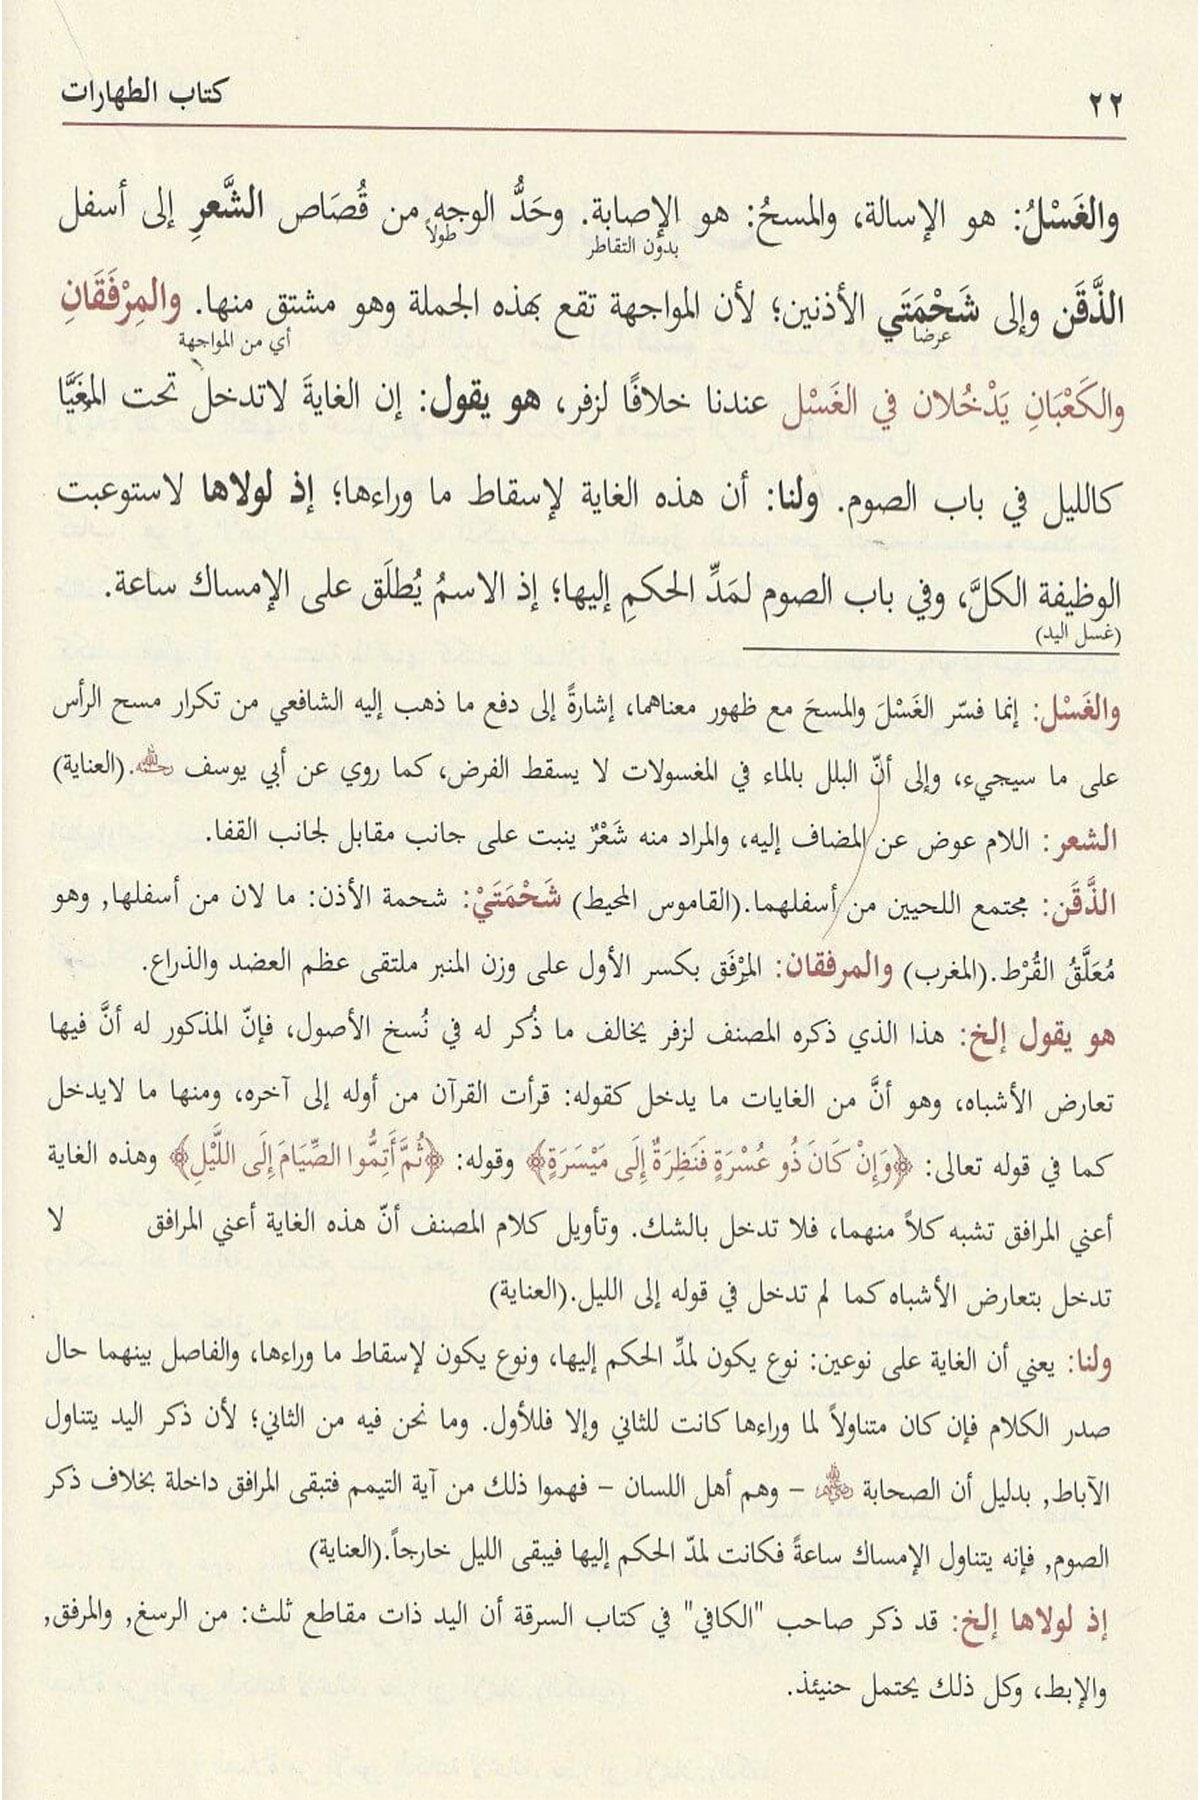 ٢٢
كتاب الطهارات
والغَسْلُ: هو الإسالة، والمسحُ: هو الإصابة. وحَدُّ الوجه من قُصَاص الشَّعرِ إلى أسفل
بدون التقاطر
طولاً
الذَّقَن وإلى شَحْمَتَي الأذنين؛ لأن المواجهة تقع بهذه الجملة وهو مشتق منها. والمِرْفَقَانِ
عرضا
أي من المواجهة
والكَعْبَانِ يَدْخُلان في الغَسْل عندنا خلافًا لزفر، هو يقول: إن الغايةَ لاتدخل تحت المغَيَّا
كالليل في باب الصوم. ولنا: أن هذه الغاية لإسقاط ما وراءها؛ إذ لولاها لاستوعبت
الوظيفة الكلَّ، وفي باب الصوم لمَدِّ الحكمِ إليها؛ إذ الاسمُ يُطلَق على الإمساك ساعة.
(غسل اليد)
والغَسْل: إنما فسّر الغَسْلَ والمسحَ مع ظهور معناهما، إشارةً إلى دفع ما ذهب إليه الشافعي من تكرار مسح الرأس
على ما سيجيء، وإلى أنّ البلل بالماء في المغسولات لا يسقط الفرض، كما روي عن أبي يوسف رحمه الله.(العناية)
الشعر: اللام عوض عن المضاف إليه، والمراد منه شَعْرٌ ينبت على جانب مقابل لجانب القفا.
الذَّقَن: مجتمع اللحيين من أسفلهما.(القاموس المحيط) شَحْمَتَيْ: شحمة الأذن: ما لان من أسفلها, وهو
مُعَلَّقُ القُرْط.(المغرب) والمرفقان: المِرْفَق بكسر الأول على وزن المنبر ملتقى عظم العضد والذراع.
هو يقول إلخ: هذا الذي ذكره المصنف لزفر يخالف ما ذُكر له في نُسخ الأصول، فإنّ المذكور له أنَّ فيها
تعارض الأشباه، وهو أنَّ من الغايات ما يدخل كقوله: قرأت القرآن من أوله إلى آخره، ومنها ما لايدخل
كما في قوله تعالى: ﴿وَإِنْ كَانَ ذُو عُسْرَةٍ فَنَظِرَةٌ إِلَى مَيْسَرَةٍ﴾ وقوله: ﴿ثُمَّ أَتِمُّوا الصِّيَامَ إِلَى اللَّيْلِ﴾ وهذه الغاية
أعني المرافق تشبه كلاً منهما، فلا تدخل بالشك. وتأويل كلام المصنف أنّ هذه الغاية أعني المرافق لا
تدخل بتعارض الأشباه كما لم تدخل في قوله إلى الليل.(العناية)
ولنا: يعني أن الغاية على نوعين: نوع يكون لمدِّ الحكم إليها، ونوع يكون لإسقاط ما وراءها، والفاصل بينهما حال
صدر الكلام فإن كان متناولاً لما وراءها كانت للثاني وإلا فللأول. وما نحن فيه من الثاني؛ لأن ذكر اليد يتناول
الآباط, بدليل أن الصحابة رضي الله عنهم – وهم أهل اللسان – فهموا ذلك من آية التيمم فتبقى المرافق داخلة بخلاف ذكر
الصوم, فإنه يتناول الإمساك ساعةً فكانت لمدّ الحكم إليها فيبقى الليل خارجاً.(العناية)
إذ لولاها إلخ: قد ذكر صاحب "الكافي" في كتاب السرقة أن اليد ذات مقاطع ثلث: من الرسغ, والمرفق,
والإبط، وكل ذلك يحتمل حنيئذ.